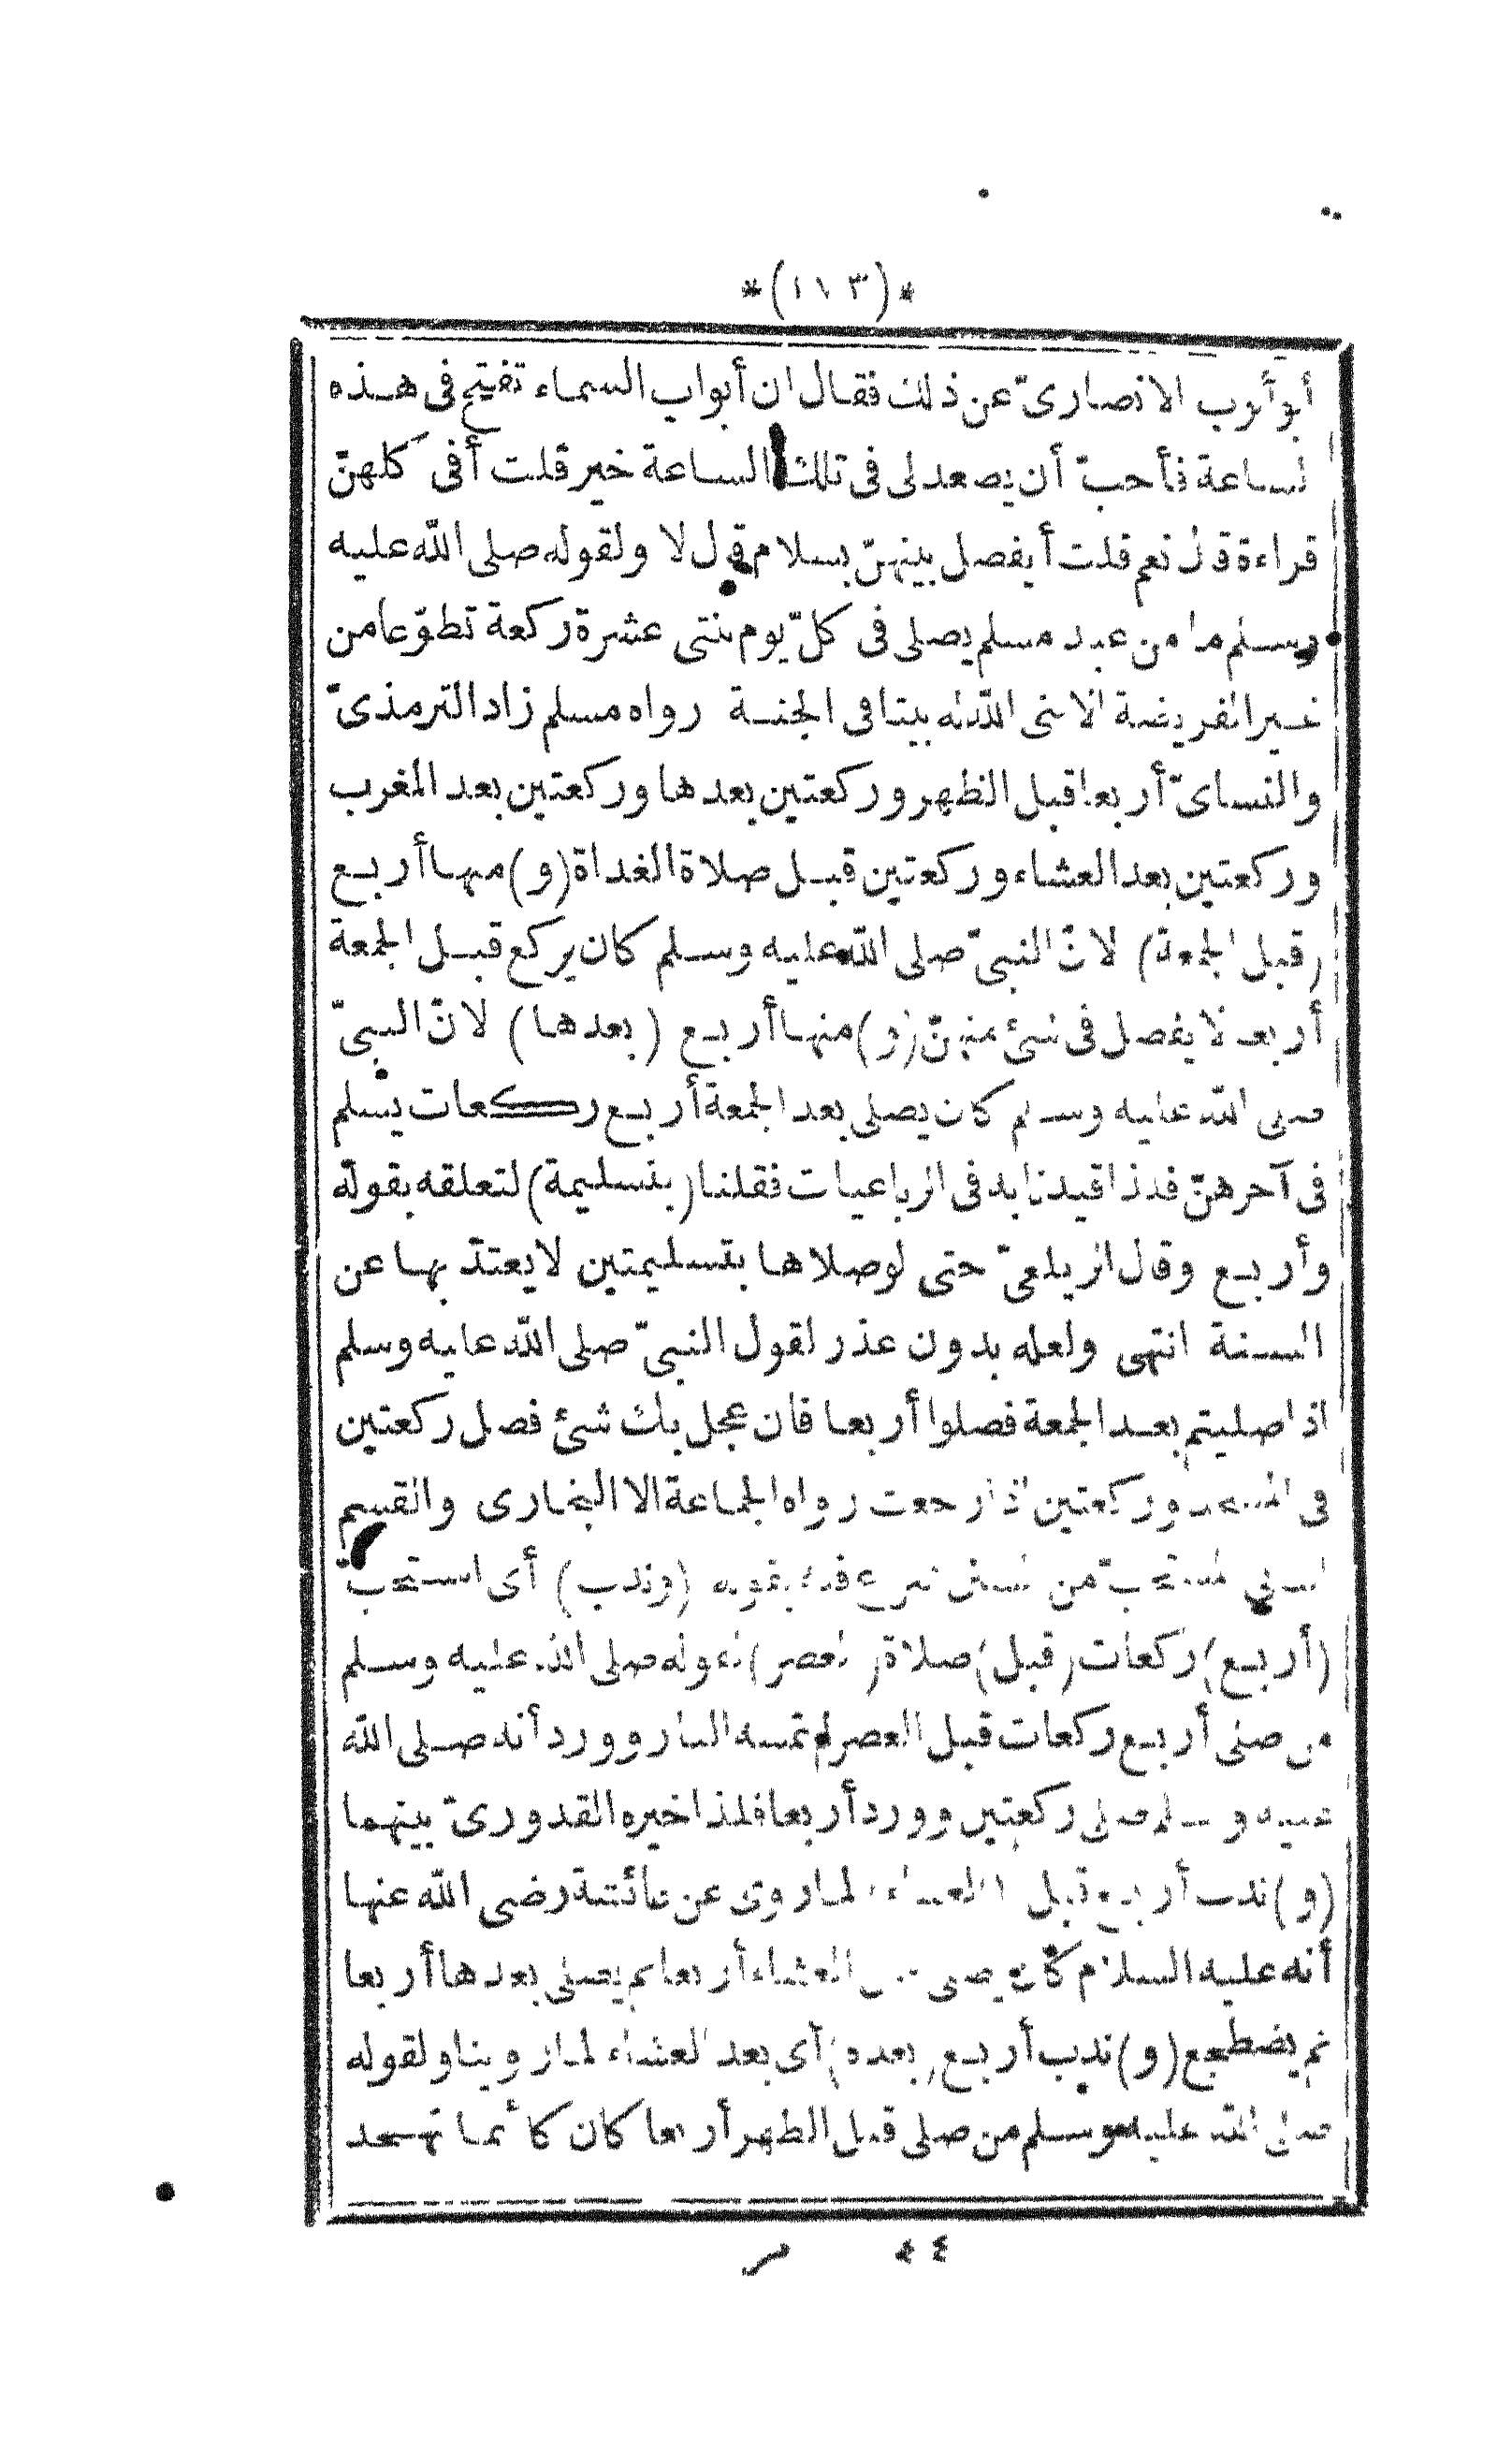 *(١١٣)*
أبو أيوب الانصارىّ عن ذلك فقال ان أبواب السماء تفتح فى هذه
الساعة فأحبّ أن يصعد لى فى تلك الساعة خير قلت أفى كلهنّ
قراءة قال نعم قلت أيفصل بينهنّ بسلام قال لا ولقوله صلى الله عليه
وسلم ما من عبد مسلم يصلى فى كلّ يوم ثنتى عشرة ركعة تطوّعا من
غير الفريضة الا بنى الله له بيتا فى الجنة رواه مسلم زاد الترمذىّ
والنساىّ أربعا قبل الظهر وركعتين بعدها وركعتين بعد المغرب
وركعتين بعد العشاء وركعتين قبل صلاة الغداة (و) منها أربع
(قبل الجمعة) لانّ النبىّ صلى الله عليه وسلم كان يركع قبل الجمعة
أربعا لا يفصل فى شئ منهنّ (و) منها أربع (بعدها) لانّ النبىّ
صلى الله عليه وسلم كان يصلى بعد الجمعة أربع ركعات يسلم
فى آخرهنّ فلذا قيدنا به فى الرباعيات فقلنا (بتسليمة) لتعلقه بقوله
وأربع وقال الزيلعىّ حتى لو صلاها بتسليمتين لا يعتدّ بها عن
السنة انتهى ولعله بدون عذر لقول النبىّ صلى الله عليه وسلم
اذا صليتم بعد الجمعة فصلوا أربعا فان عجل بك شئ فصل ركعتين
فى المسجد وركعتين اذا رجعت رواه الجماعة الا البخارى والقسم
الثانى المستحبّ من السنن شرع فيه بقوله (وندب) أى استحبّ
(أربع) ركعات (قبل) صلاة (العصر) لقوله صلى الله عليه وسلم
من صلى أربع ركعات قبل العصر لم تمسه النار وورد أنه صلى الله
عليه وسلم صلى ركعتين وورد أربعا فلذا خيره القدورىّ بينهما
(و) ندب أربع قبل العشاء لما روى عن عائشة رضى الله عنها
أنه عليه السلام كان يصلى قبل العشاء أربعا ثم يصلى بعدها أربعا
ثم يضطجع (و) ندب أربع (بعده) أى بعد العشاء لما روينا ولقوله
صلى الله عليه وسلم من صلى قبل الظهر أربعا كان كأنما تهجد